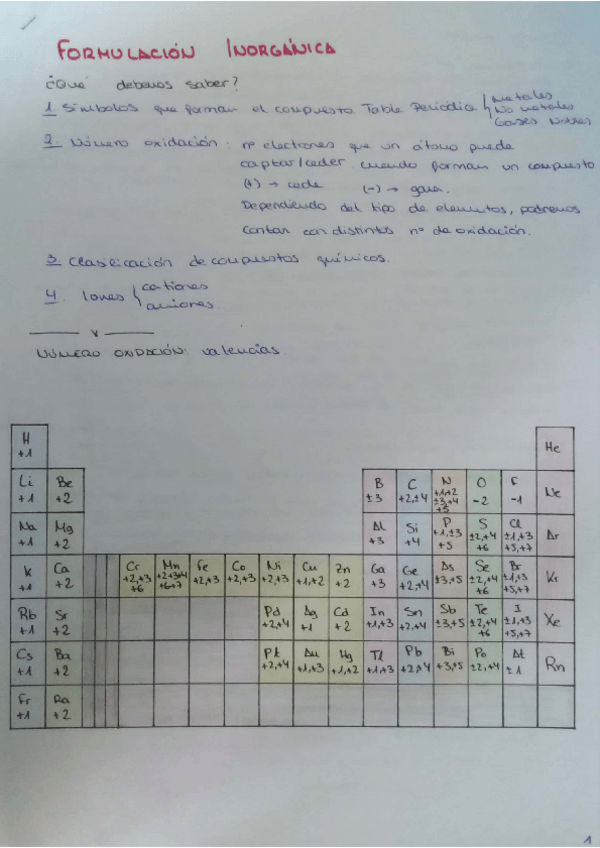 FORMULACIÓN INORGÁNICA
¿Qué debemos saber?
1. Símbolos que forman el compuesto. Tabla Periódica { Metales
No metales
Gases Nobles
2. Número oxidación: nº electrones que un átomo puede
captar/ceder cuando forman un compuesto
(+) → cede (-) → gana.
Dependiendo del tipo de elementos, podremos
contar con distintos nº de oxidación.
3. Clasificación de compuestos químicos.
4. Iones { cationes
aniones
NÚMERO OXIDACIÓN: valencias.
H He
+1
Li Be B C N O F Ne
+1 +2 ±3 +2,±4 ±1,±2 ±3,+4 +5 -2 -1
Na Mg Al Si P S Cl Ar
+1 +2 +3 +4 +1,±3 +5 ±2,+4 +6 ±1,+3 +5,+7
K Ca Cr Mn Fe Co Ni Cu Zn Ga Ge As Se Br Kr
+1 +2 +2,+3 +6 +2+3+4 +6+7 +2,+3 +2,+3 +2,+3 +1,+2 +2 +3 +2,+4 ±3,+5 ±2,+4 +6 ±1,+3 +5,+7
Rb Sr Pd Ag Cd In Sn Sb Te I Xe
+1 +2 +2,+4 +1 +2 +1,+3 +2,+4 ±3,+5 ±2,+4 +6 ±1,+3 +5,+7
Cs Ba Pt Au Hg Tl Pb Bi Po At Rn
+1 +2 +2,+4 +1,+3 +1,+2 +1,+3 +2,+4 +3,+5 ±2,+4 ±1
Fr Ra
+1 +2
1